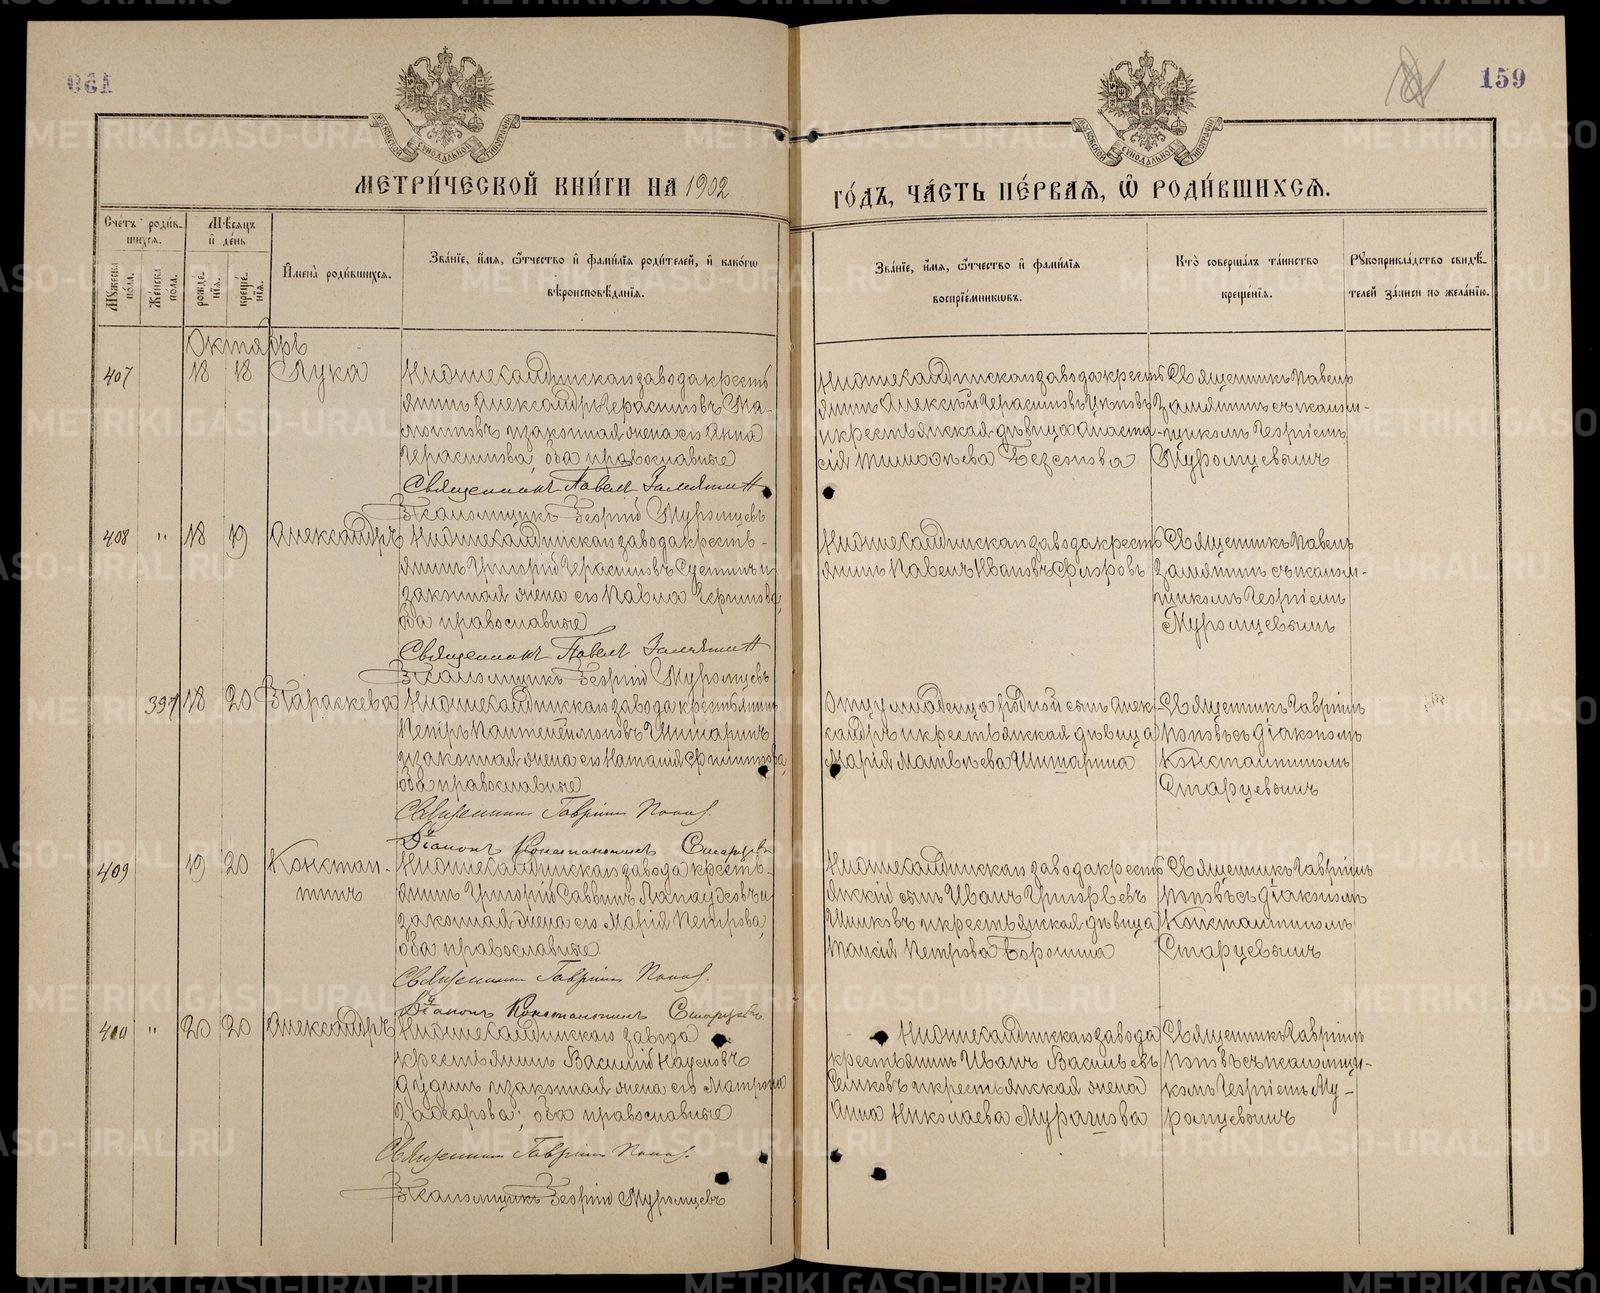 159
МЕТРИ́ЧЕСКОЙ КНИ́ГИ НА 1902
ГО́ДЪ, ЧА́СТЬ ПЕ́РВАѦ, Ѿ РОДИ́ВШИХСѦ.
Сче́тъ роди́вшихсѧ.
Мꙋ́жеска по́ла.
Же́нска по́ла.
Мѣ́сѧцъ и҆ де́нь
рожде́нїѧ.
креще́нїѧ.
И҆мена̀ роди́вшихсѧ.
Зва́нїе, и҆́мѧ, ѻ҆́тчество и҆ фами́лїѧ роди́телей, и҆ како́гѡ
вѣроисповѣ́данїѧ.
Зва́нїе, и҆́мѧ, ѻ҆́тчество и҆ фами́лїѧ
воспрїе́мникѡвъ.
Кто̀ соверша́лъ та́инство
креще́нїѧ.
Рꙋкоприкла́дство свидѣ́-
телей за́писи по жела́нїю.
Октябрь
407 18 18 Лука
Нижнесалдинскаго завода кресть
янинъ Александръ Герасимовъ Ма-
и законная жена его Анна
Герасимова, оба православные
Священникъ Павелъ Замятинъ
Псаломщикъ Георгій Муромцевъ
Нижнесалдинскаго завода кресть
янинъ Алексѣй Герасимовъ
и крестьянская дѣвица Анаста-
сія Тимоѳеева
Священникъ Павелъ
Замятинъ съ псалом-
щикомъ Георгіемъ
Муромцевымъ
408 " 18 19 Александръ
Нижнесалдинскаго завода кресть-
янинъ Григорій Герасимовъ и
законная жена его Павла
оба православные
Священникъ Павелъ Замятинъ
Псаломщикъ Георгій Муромцевъ
Нижнесалдинскаго завода кресть
янинъ Павелъ Ивановъ
Священникъ Павелъ
Замятинъ съ псалом-
щикомъ Георгіемъ
Муромцевымъ
397 18 20 Параскева
Нижнесалдинскаго завода крестьянинъ
Петръ Пантелеймоновъ Шишаринъ
и законная жена его Наталія Филиппова,
оба православные
Священникъ Гавріилъ Поповъ
Діаконъ Константинъ Старцевъ
Отцу младенца родной сынъ Алек-
сандръ и крестьянская дѣвица
Марія Матвѣева Шишарина
Священникъ Гавріилъ
Поповъ съ діакономъ
Константиномъ
Старцевымъ
409 19 20 Констан-
тинъ
Нижнесалдинскаго завода кресть-
янинъ Григорій Саввинъ и
законная жена его Марія Петрова,
оба православные
Священникъ Гавріилъ Поповъ
Діаконъ Константинъ Старцевъ
Нижнесалдинскаго завода кресть
янскій сынъ Иванъ Григорьевъ
и крестьянская дѣвица
Таисія Петрова
Священникъ Гавріилъ
Поповъ съ діакономъ
Константиномъ
Старцевымъ
410 " 20 20 Александръ
Нижнесалдинскаго завода
крестьянинъ Василій Наумовъ
Дудинъ и законная жена его Матрона
Захарова; оба православные
Священникъ Гавріилъ Поповъ
Псаломщикъ Георгій Муромцевъ
Нижнесалдинскаго завода
крестьянинъ Иванъ Васильевъ
и крестьянская жена
Анна Николаева Мурашова
Священникъ Гавріилъ
Поповъ съ псаломщи-
комъ Георгіемъ Му-
ромцевымъ
METRIKI.GASO-URAL.RU